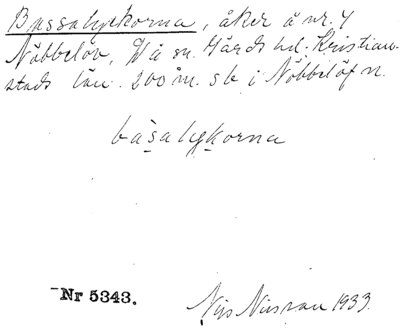 Bassalyckorna, åker å nr. 4
Nöbbelöv, V å sn. Gärds hd. Kristian-
stads län. 200 m. s b i Nöbbelöf n.
båsalykorna
Nr 5343.
Nils Nilsson 1933.